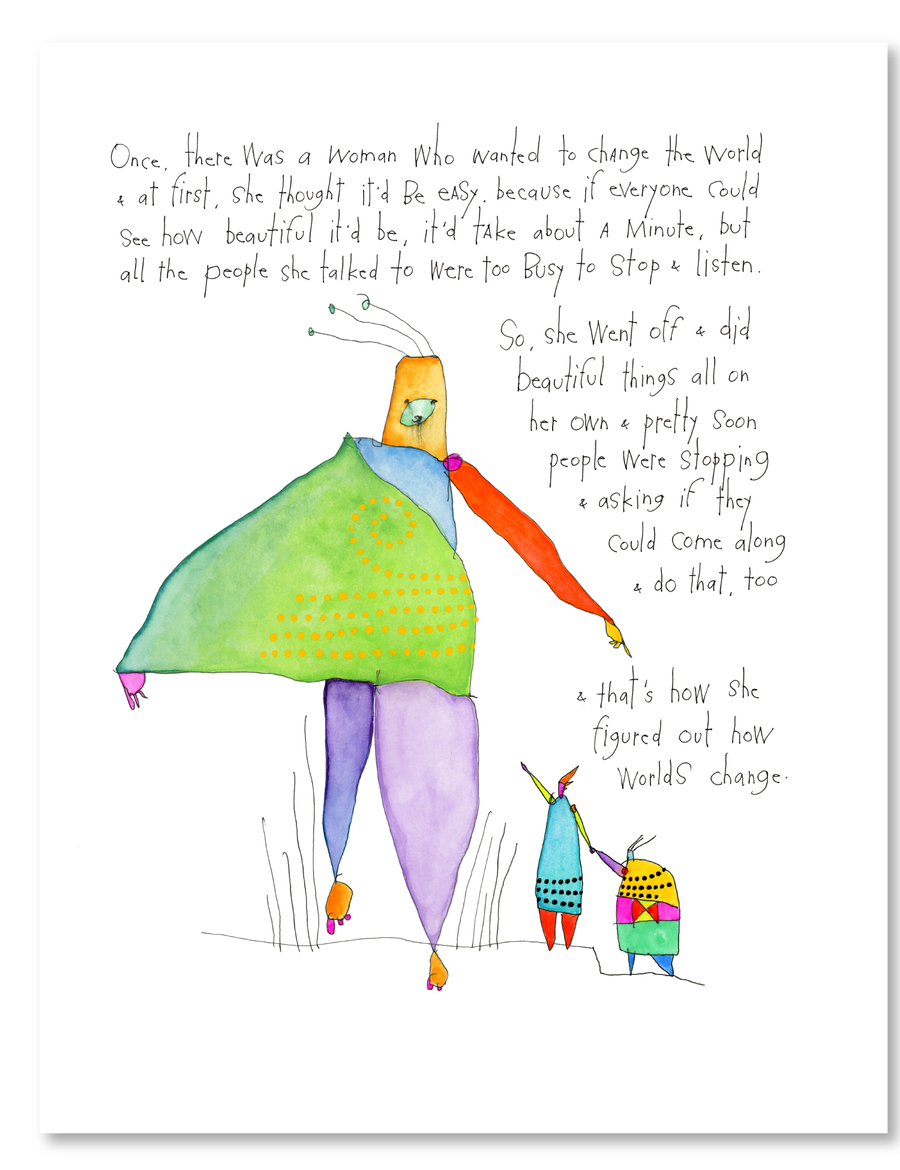 Once, there was a woman who wanted to change the world
& at first, she thought it'd be easy, because if everyone could
see how beautiful it'd be, it'd take about a minute, but
all the people she talked to were too busy to stop & listen.
So, she went off & did
beautiful things all on
her own & pretty soon
people were stopping
& asking if they
could come along
& do that, too
& that's how she
figured out how
worlds change.